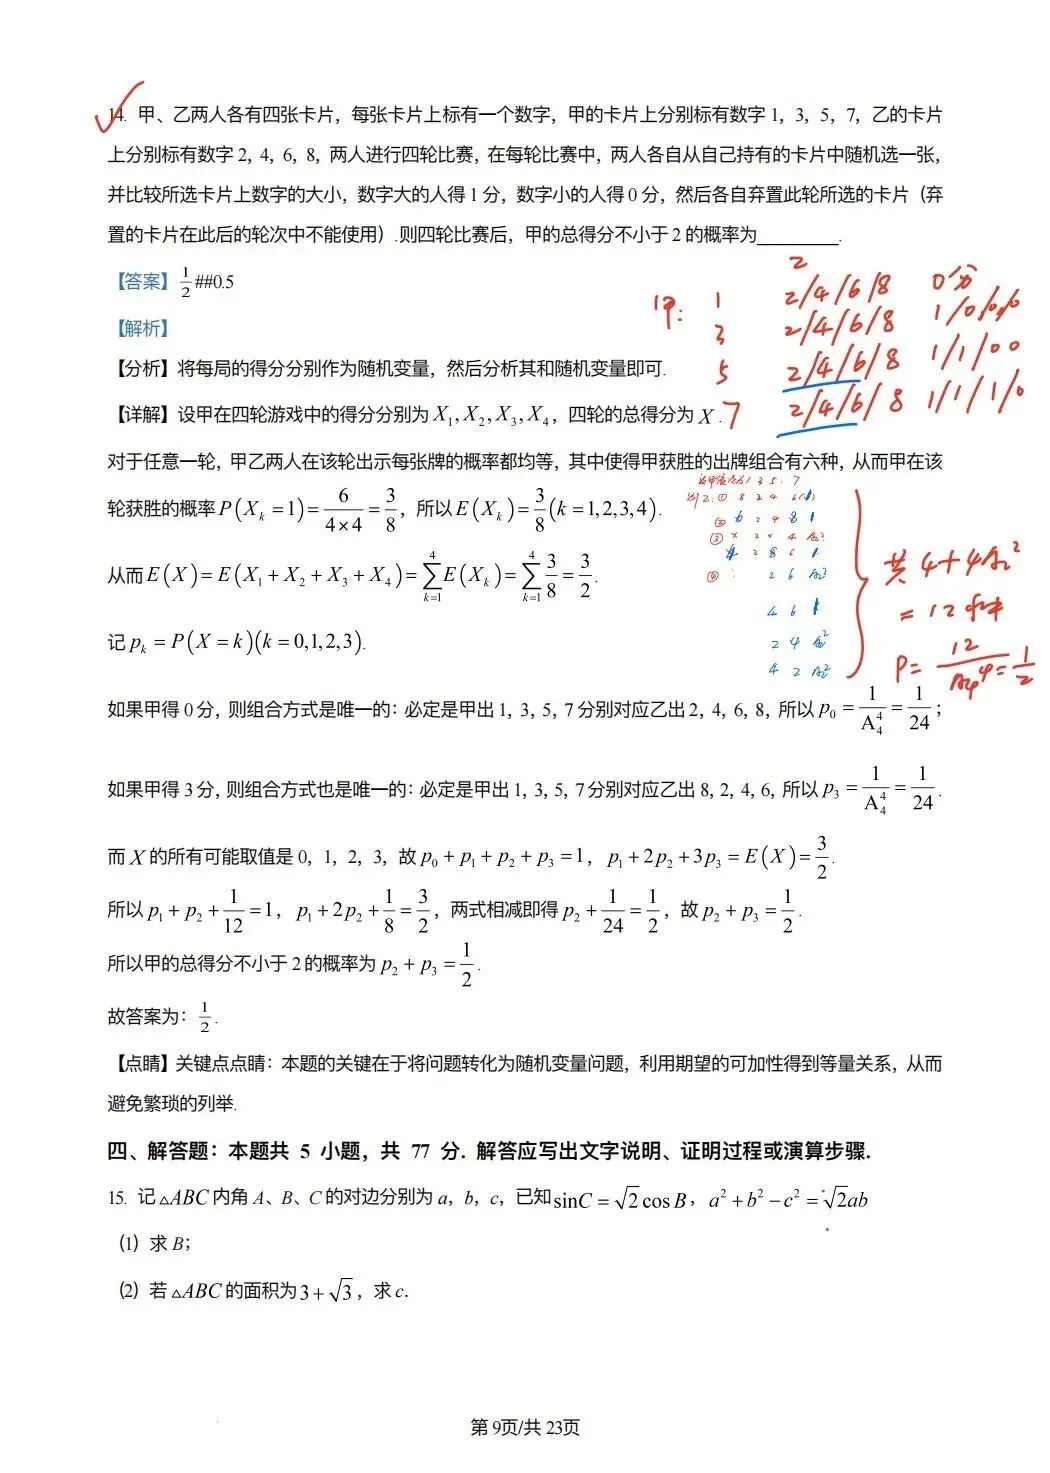 14. 甲、乙两人各有四张卡片，每张卡片上标有一个数字，甲的卡片上分别标有数字 1，3，5，7，乙的卡片
上分别标有数字 2，4，6，8，两人进行四轮比赛，在每轮比赛中，两人各自从自己持有的卡片中随机选一张，
并比较所选卡片上数字的大小，数字大的人得 1 分，数字小的人得 0 分，然后各自弃置此轮所选的卡片（弃
置的卡片在此后的轮次中不能使用）.则四轮比赛后，甲的总得分不小于 2 的概率为_________.
【答案】1/2##0.5
2
甲: 1 2/4/6/8 0分
3 2/4/6/8 1/0/0/0
5 2/4/6/8 1/1/00
7 2/4/6/8 1/1/1/0
【解析】
【分析】将每局的得分分别作为随机变量，然后分析其和随机变量即可.
【详解】设甲在四轮游戏中的得分分别为 X₁, X₂, X₃, X₄，四轮的总得分为 X .
对于任意一轮，甲乙两人在该轮出示每张牌的概率都均等，其中使得甲获胜的出牌组合有六种，从而甲在该
轮获胜的概率 P(X_k = 1) = 6/(4×4) = 3/8，所以 E(X_k) = 3/8 (k = 1, 2, 3, 4).
从而 E(X) = E(X₁ + X₂ + X₃ + X₄) = ∑_{k=1}^{4} E(X_k) = ∑_{k=1}^{4} 3/8 = 3/2.
记 p_k = P(X = k)(k = 0,1,2,3).
共 4+4A₂²
= 12种
P = 12/A₄⁴ = 1/2
如果甲得 0 分，则组合方式是唯一的：必定是甲出 1，3，5，7 分别对应乙出 2，4，6，8，所以 p₀ = 1/A₄⁴ = 1/24；
如果甲得 3 分，则组合方式也是唯一的：必定是甲出 1，3，5，7 分别对应乙出 8，2，4，6，所以 p₃ = 1/A₄⁴ = 1/24.
而 X 的所有可能取值是 0，1，2，3，故 p₀ + p₁ + p₂ + p₃ = 1，p₁ + 2p₂ + 3p₃ = E(X) = 3/2.
所以 p₁ + p₂ + 1/12 = 1，p₁ + 2p₂ + 1/8 = 3/2，两式相减即得 p₂ + 1/24 = 1/2，故 p₂ + p₃ = 1/2.
所以甲的总得分不小于 2 的概率为 p₂ + p₃ = 1/2.
故答案为：1/2.
【点睛】关键点点睛：本题的关键在于将问题转化为随机变量问题，利用期望的可加性得到等量关系，从而
避免繁琐的列举.
四、解答题：本题共 5 小题，共 77 分. 解答应写出文字说明、证明过程或演算步骤.
15. 记 △ABC 内角 A、B、C 的对边分别为 a，b，c，已知 sinC = √2 cos B，a² + b² − c² = √2ab
（1）求 B；
（2）若 △ABC 的面积为 3 + √3，求 c．
第 9页/共 23页